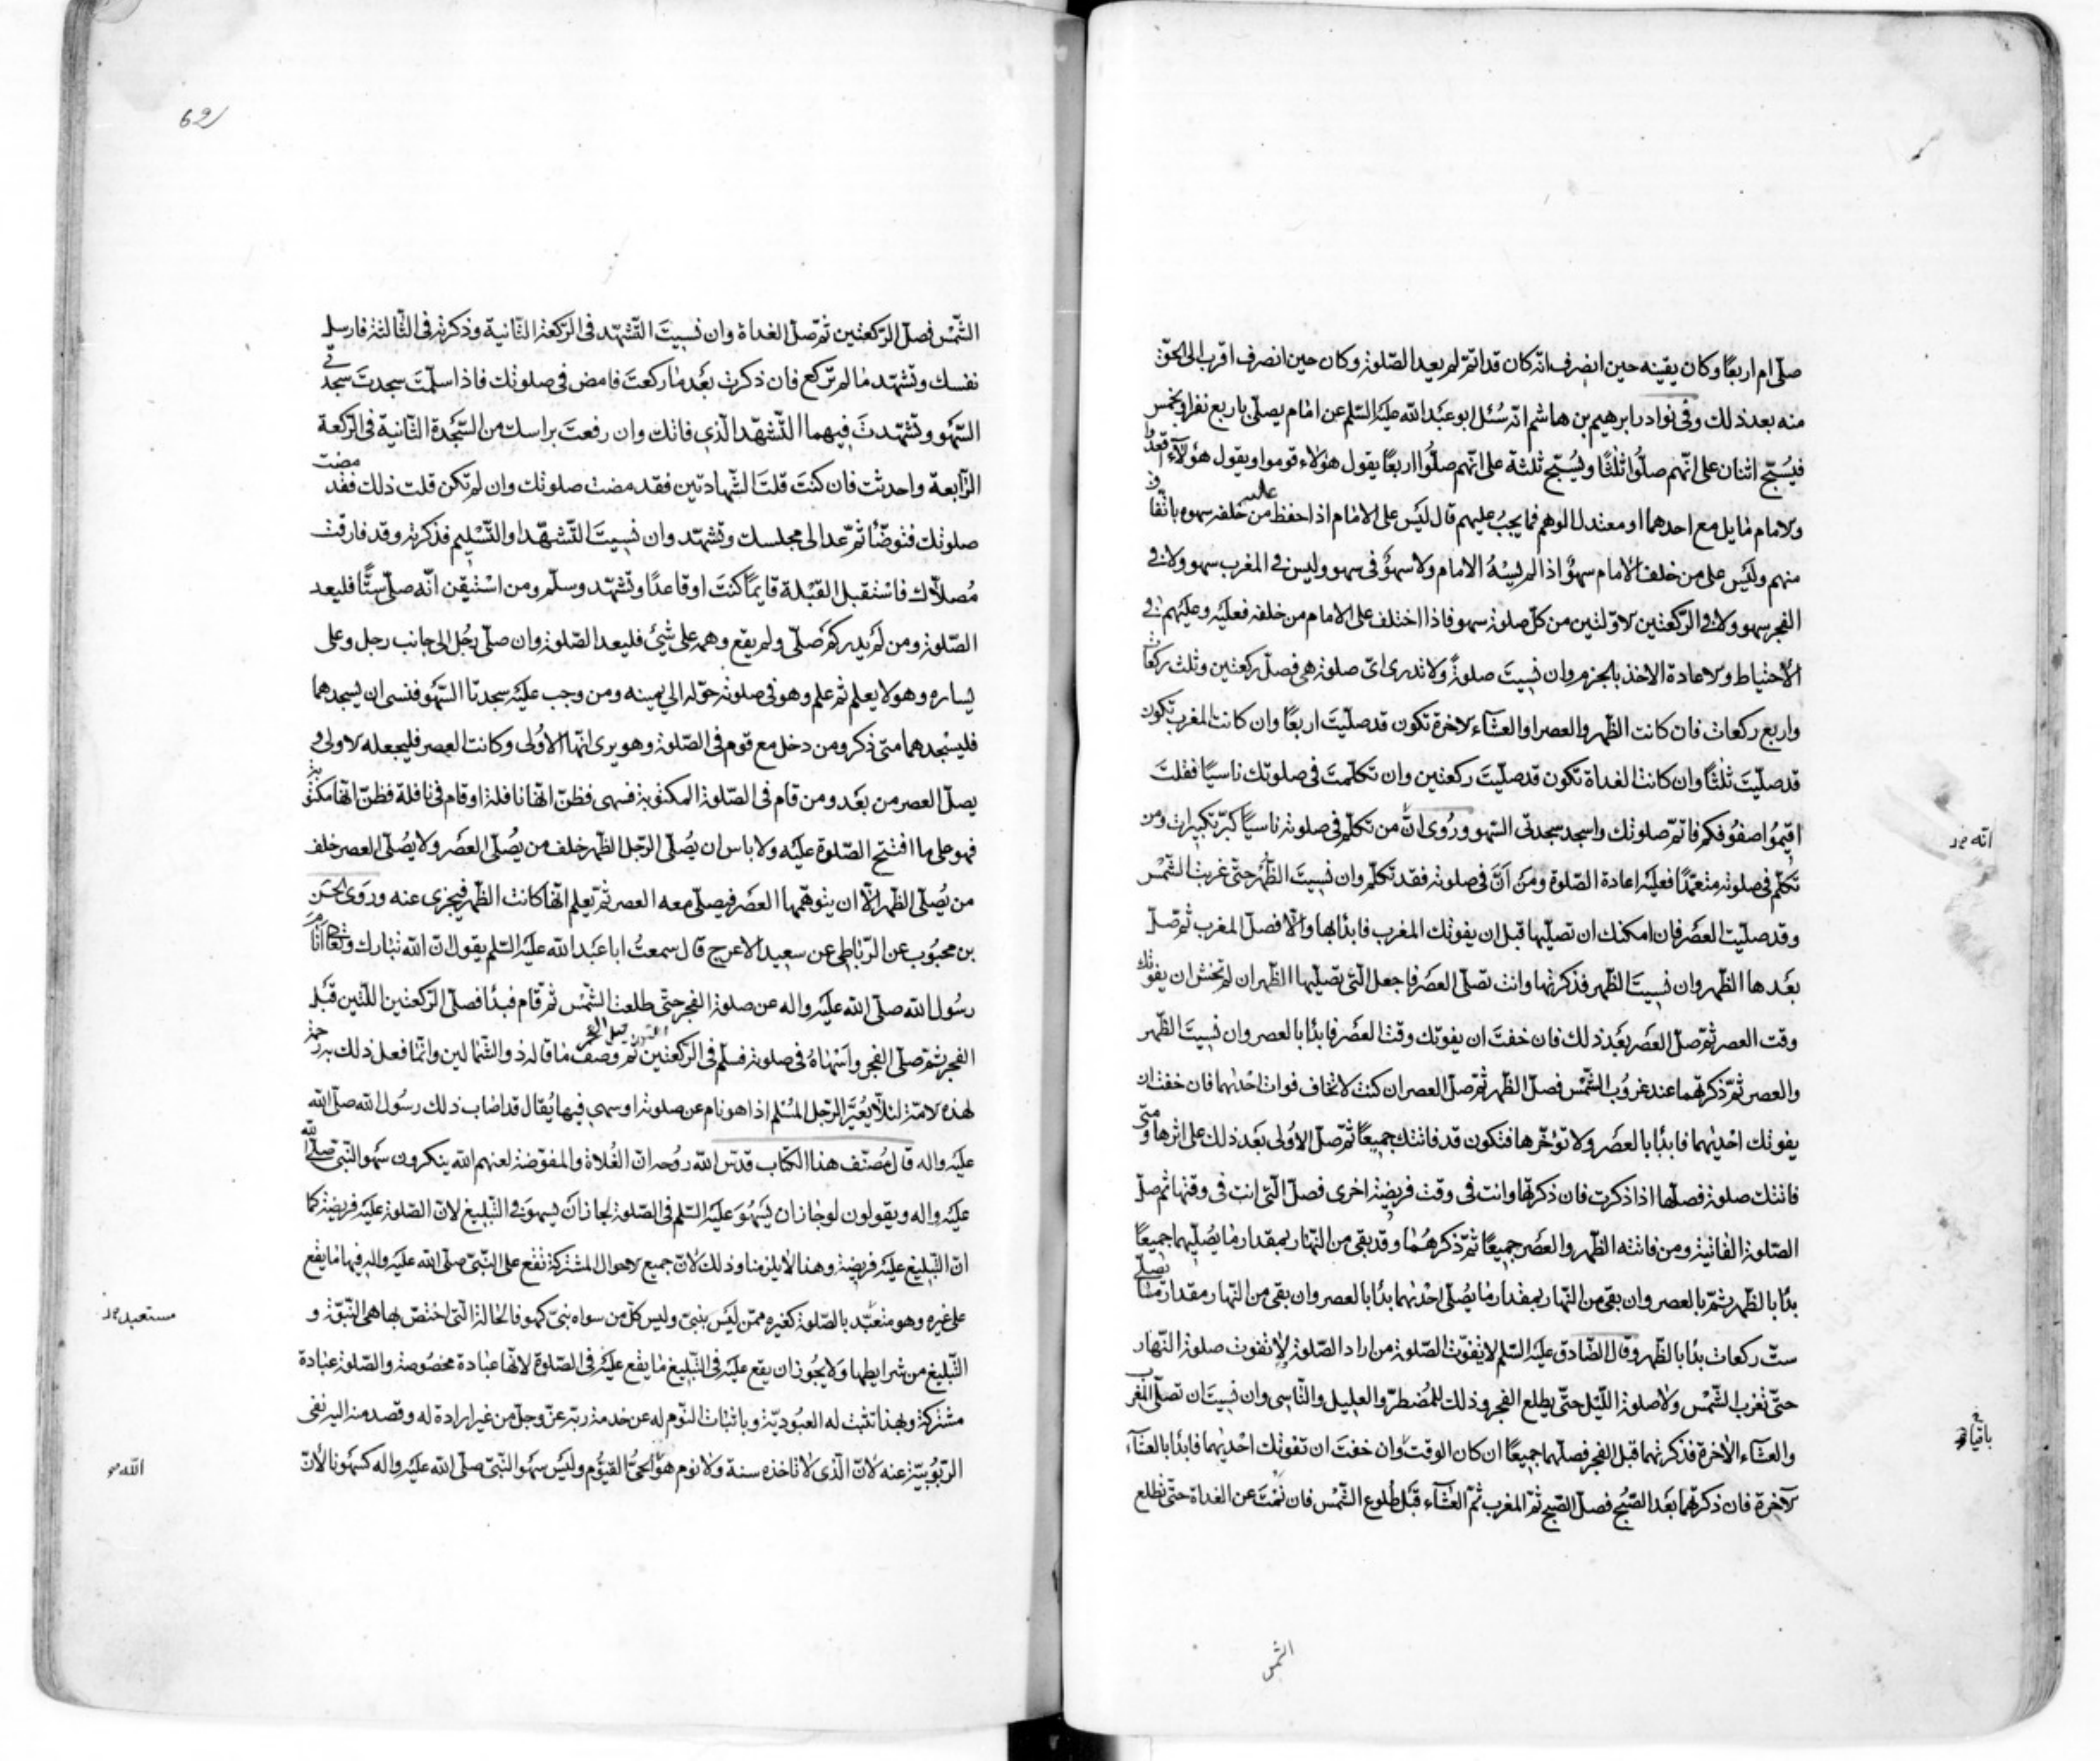 صلّى ام اربعًا وكان يقينه حين انصرف انّه كان قد اتمّ لم يعيد الصّلوة وكان حين انصرف اقرب الى الحقّ
منه بعد ذلك وفى نوادر ابرهيم بن هاشم انّه سُئل ابو عبد الله عليه السّلم عن امام يصلّى باربع نفر او بخمس
فيُسبّح اثنان على انّهم صلّوا ثلثًا ويُسبّح ثلثة على انّهم صلّوا اربعًا يقول هؤلاء قوموا ويقول هؤلاء اقعدوا
والامام مايل مع احدهما او معتدل الوهم فما يجب عليهم قال ليس على الامام اذا حفظ عليه من خلفه سهوه باتّفاق
منهم وليس على من خلف الامام سهوٌ اذا لم يسهُ الامام ولا سهوٌ فى سهو وليس فى المغرب سهو ولا فى
الفجر سهو ولا فى الرّكعتين الاوّلتين من كلّ صلوة سهو فاذا اختلف على الامام من خلفه فعليه وعليهم فى
الاحتياط والاعادة الاخذ بالجزم وان نسيتَ صلوةً ولا تدرى اىّ صلوة هى فصلّ ركعتين وثلث ركعات
واربع ركعات فان كانت الظّهر والعصر او العشاء الاخرة تكون قد صلّيتَ اربعًا وان كانت المغرب تكون
قد صلّيتَ ثلثًا وان كانت الغداة تكون قد صلّيتَ ركعتين وان تكلّمتَ فى صلوتك ناسيًا فقلتَ
اقيمُوا صفوُفكم فاتمّ صلوتك واسجد سجدتى السّهو ورُوى انّ من تكلّم فى صلوته ناسيًا كبّر تكبيرات ومن
تكلّم فى صلوته متعمّدًا فعليه اعادة الصّلوة ومن اَنّ فى صلوته فقد تكلّم وان نسيتَ الظّهر حتّى غربت الشّمس
وقد صلّيت العصر فان امكنك ان تصلّيها قبل ان يفوتك المغرب فابدا بها والّا فصلّ المغرب ثم صلّ
بعدها الظّهر وان نسيتَ الظّهر فذكرتها وانت تصلّى العصر فاجعل الّتى تصلّيها الظّهر ان لم تخش ان يفوتك
وقت العصر ثمّ صلّ العصر بعد ذلك فان خفتَ ان يفوتك وقت العصر فابدا بالعصر وان نسيتَ الظّهر
والعصر ثمّ ذكرتهما عند غروُب الشّمس فصلّ الظّهر ثمّ صلّ العصر ان كنت لا تخاف فوات احديهما فان خفت ان
يفوتك احديهما فابدا بالعصر ولا تؤخّرها فتكون قد فاتتك جميعًا ثمّ صلّ الاولى بعد ذلك على اثرها ومتى
فاتتك صلوة فصلّها اذا ذكرت فان ذكرتها وانت فى وقت فريضة اخرى فصلّ الّتى انت فى وقتها ثم صلّ
الصّلوة الفائتة ومن فاتته الظّهر والعصر جميعًا ثمّ ذكرهُما وقد بقى من النّهار بمقدار ما يُصلّيهما جميعًا
بدأ بالظّهر ثمّ بالعصر وان بقى من النّهار بمقدار ما يُصلّى احديهما بدأ بالعصر وان بقى من النّهار مقدار ما يصلّى
ستّ ركعات بدأ بالظّهر وقال الصّادق عليه السّلم لا يفوت الصّلوة من اراد الصّلوة لا تفوت صلوة النّهار
حتّى تغرب الشّمس ولا صلوة اللّيل حتّى يطلع الفجر وذلك للمُضطرّ والعليل والنّاسى وان نسيتَ ان تصلّى المغرب
والعشاء الاخرة فذكرتهما قبل الفجر فصلّهما جميعًا ان كان الوقت وان خفتَ ان تفوتك احديهما فابدا بالعشاء
الآخرة فان ذكرتهما بعد الصّبُح فصلّ الصّبح ثمّ المغرب ثمّ العشاء قبل طلُوع الشّمس فان نمْتَ عن الغداة حتّى تطلع
باقيا
الشمس
62
الشّمس فصلّ الرّكعتين ثمّ صلّ الغداة وان نسيتَ التّشهّد فى الرّكعة الثّانية وذكرته فى الثّالثة فارسل
نفسك وتشهّد ما لم تركع فان ذكرت بعد ما ركعتَ فامض فى صلوتك فاذا سلّمتَ سجدتَ سجدتى
السّهو وتشهّدتَ فيهما التّشهّد الّذى فاتك وان رفعتَ راسك من السّجدة الثّانية فى الرّكعة
الرّابعة واحدثت فان كنتَ قلتَ الشّهادتين فقد مضت صلوتك وان لم تكن قلت ذلك فقد مضت
صلوتك فتوضّأ ثمّ عد الى مجلسك وتشهّد وان نسيتَ التّشهّد او التّسليم فذكرته وقد فارقت
مُصلّاك فاستقبل القبلة قايمًا كنتَ او قاعدًا وتشهّد وسلّم ومن استيقن انّه صلّى ستًّا فليعد
الصّلوة ومن لم يدر كم صلّى ولم يقع وهمه على شئ فليعد الصّلوة وان صلّى رجُل الى جانب رجل وعلى
يساره وهو لا يعلم ثمّ علم وهو فى صلوته حوّله الى يمينه ومن وجب عليه سجدتا السّهو فنسى ان يسجدهما
فليسجدهما متى ذكر ومن دخل مع قوم فى الصّلوة وهو يرى انّها الاوُلى وكانت العصر فليجعله الاولى و
يصلّ العصر من بعد ومن قام فى الصّلوة المكتوبة فسهى فظنّ انّها نافلة او قام فى نافلة فظنّ انّها مكتوبة
فهو على ما افتتح الصّلوة عليه ولا باس ان يُصلّى الرّجل الظّهر خلف من يُصلّى العصر ولا يُصلّى العصر خلف
من يُصلّى الظّهر الّا ان يتوهّمها العصر فيصلّى معه العصر ثمّ يعلم انّها كانت الظّهر فيجزى عنه ورَوى الحسن
بن محبُوب عن الرّباطى عن سعيد الاعرج قال سمعتُ ابا عبد الله عليه السّلم يقول انّ الله تبارك وتعالى انام
رسُول الله صلّى الله عليه واله عن صلوة الفجر حتّى طلعت الشّمس ثمّ قام فبدأ فصلّى الرّكعتين اللّتين قبل
الفجر ثمّ صلّى الفجر واَسْهاهُ فى صلوته فسلّم فى الرّكعتين ثمّ وصف ما قاله ذو الشّمالين وانّما فعل ذلك به رحمة
لهذه الامّة لئلّا يُعيّرَ الرّجل المُسْلم اذا هو نام عن صلوته او سهى فيها يُقال قد اصاب ذلك رسُول الله صلّى الله
عليه واله قال مُصنّف هذا الكتاب قدّس الله رُوحه انّ الغُلاة والمفوّضة لعنهم الله ينكرون سهو النّبىّ صلّى الله
عليه واله ويقولون لو جاز ان يَسْهُوَ عليه السّلم فى الصّلوة لجاز اَن يسهوَ فى التّبليغ لانّ الصّلوة عليه فريضة كما
انّ التّبليغ عليه فريضة وهذا لا يلزمنا وذلك لانّ جميع الاحوال المشتركة تقع على النّبىّ صلّى الله عليه واله فيها ما يقع
على غيره وهو متعبّد بالصّلوة كغيره ممّن ليس بنبىّ وليس كلّ من سواه نبىّ كهو فالحالة الّتى اختصّ بها هى النّبوّة و
التّبليغ من شرايطها ولا يجُوز ان يقع عليه فى التّبليغ ما يقع عليه فى الصّلوة لانّها عبادة مخصُوصة والصّلوة عبادة
مشتركة وبهذا تثبت له العبُوديّة وباثبات النّوم له عن خدمة ربّه عزّ وجلّ من غير ارادة له وقصد منه اليه نفى
الرّبُوبيّة عنه لانّ الّذى لا تاخذه سنة ولا نوم هو الحىُّ القيّوُم وليس سهو النّبىّ صلّى الله عليه واله كسهونا لانّ